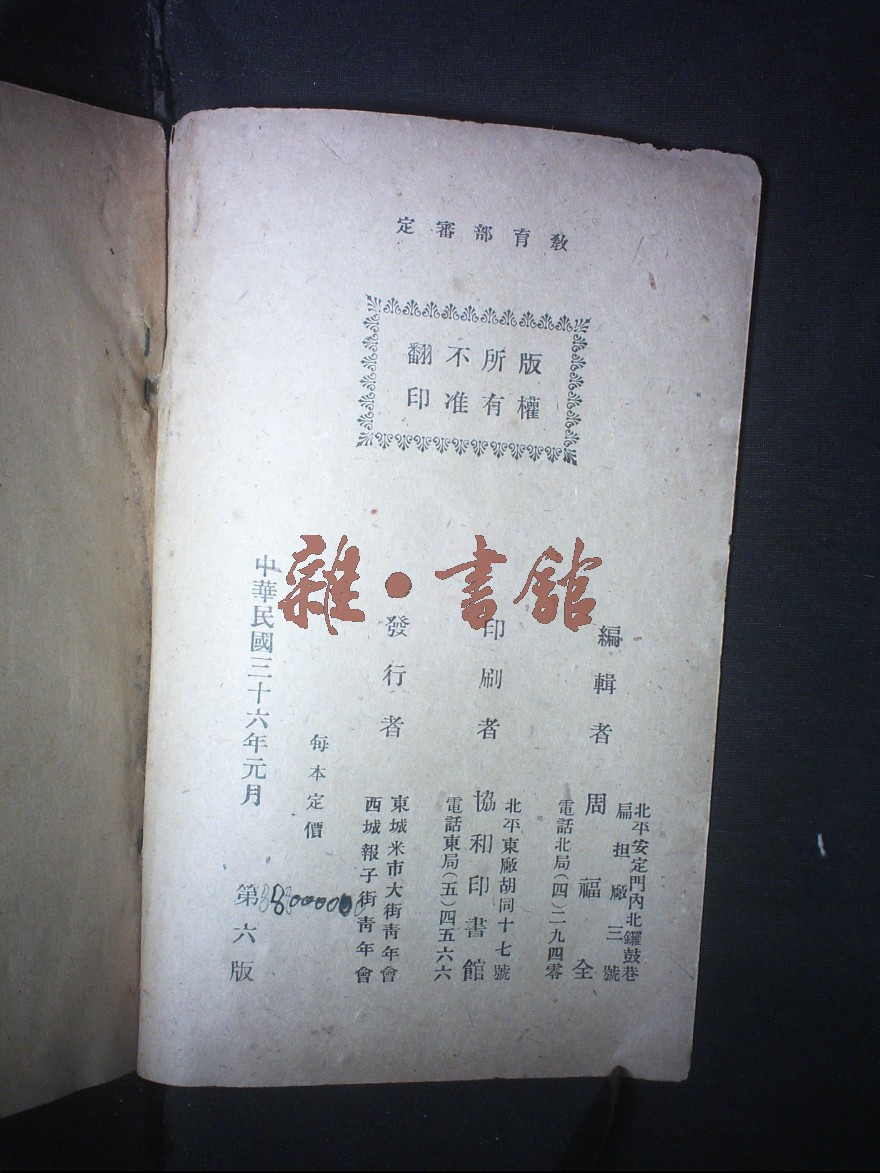 教育部審定
版權
所有
不准
翻印
雜·書館
編輯者
北平安定門內北鑼鼓巷
扁担廠三號
周福全
電話北局(四)二九四零
印刷者
北平東廠胡同十七號
協和印書館
電話東局(五)四五六六
發行者
東城米市大街青年會
西城報子街青年會
每本定價
中華民國三十六年元月
第六版